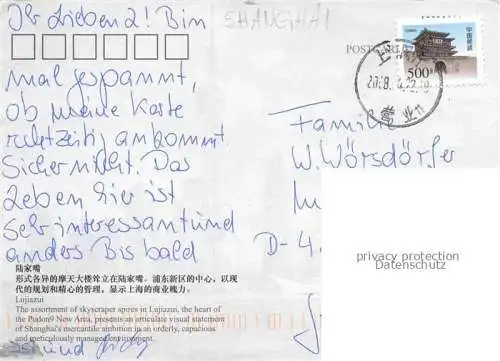 Ihr Lieben 2! Bin
mal gespannt,
ob meine Karte
rechtzeitig ankommt.
Sicher nicht. Das
Leben hier ist
sehr interessant und
anders Bis bald
SHANGHAI
POSTCARD
中国邮政
500
上海
营业
Familie
W. Wörsdörfer
D-4
privacy protection
Datenschutz
陆家嘴
形式各异的摩天大楼耸立在陆家嘴。浦东新区的中心，以现
代的规划和精心的管理，显示上海的商业魄力。
Lujiazui
The assortment of skyscraper spires in Lujiazui, the heart of
the Pudong New Area, presents an articulate visual statement
of Shanghai's mercantile ambition in an orderly, capacious
and meticulously managed environment.